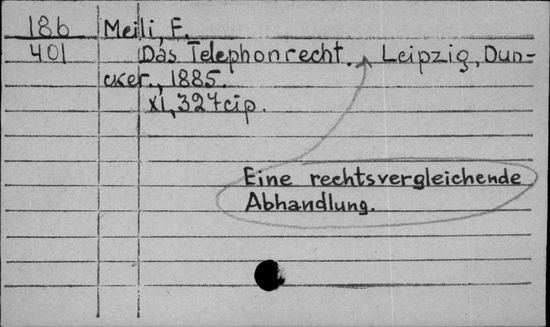 186 Meili, F.
401 Das Telephonrecht. Leipzig, Dun-
cker., 1885.
XI, 327 cip.
Eine rechtsvergleichende
Abhandlung.